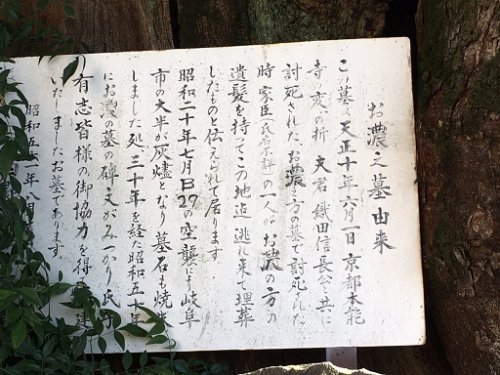 お濃之墓由来
この墓は天正十年六月一日京都本能
寺の変の折 夫君 織田信長公と共に
討死された、お濃の方の墓で討死された
時家臣(氏名不詳)の一人が お濃の方の
遺髪を持ってこの地迄 逃れ来て埋葬
したものと伝えられて居ります
昭和二十年七月B29の空襲により岐阜
市の大半が灰燼となり 墓石も焼失
しました処 三十年を経た昭和五十年
にお濃の墓の碑文がみつかり氏子
有志皆様の御協力を得 建
いたしましたお墓であります。
昭和五 年八月